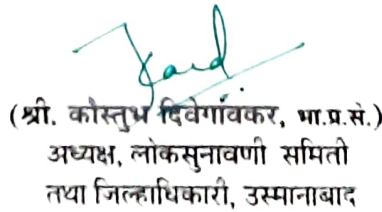 (श्री. कौस्तुभ दिवेगावकर, भा.प्र.से.)
अध्यक्ष, लोकसुनावणी समिती
तथा जिल्हाधिकारी, उस्मानाबाद